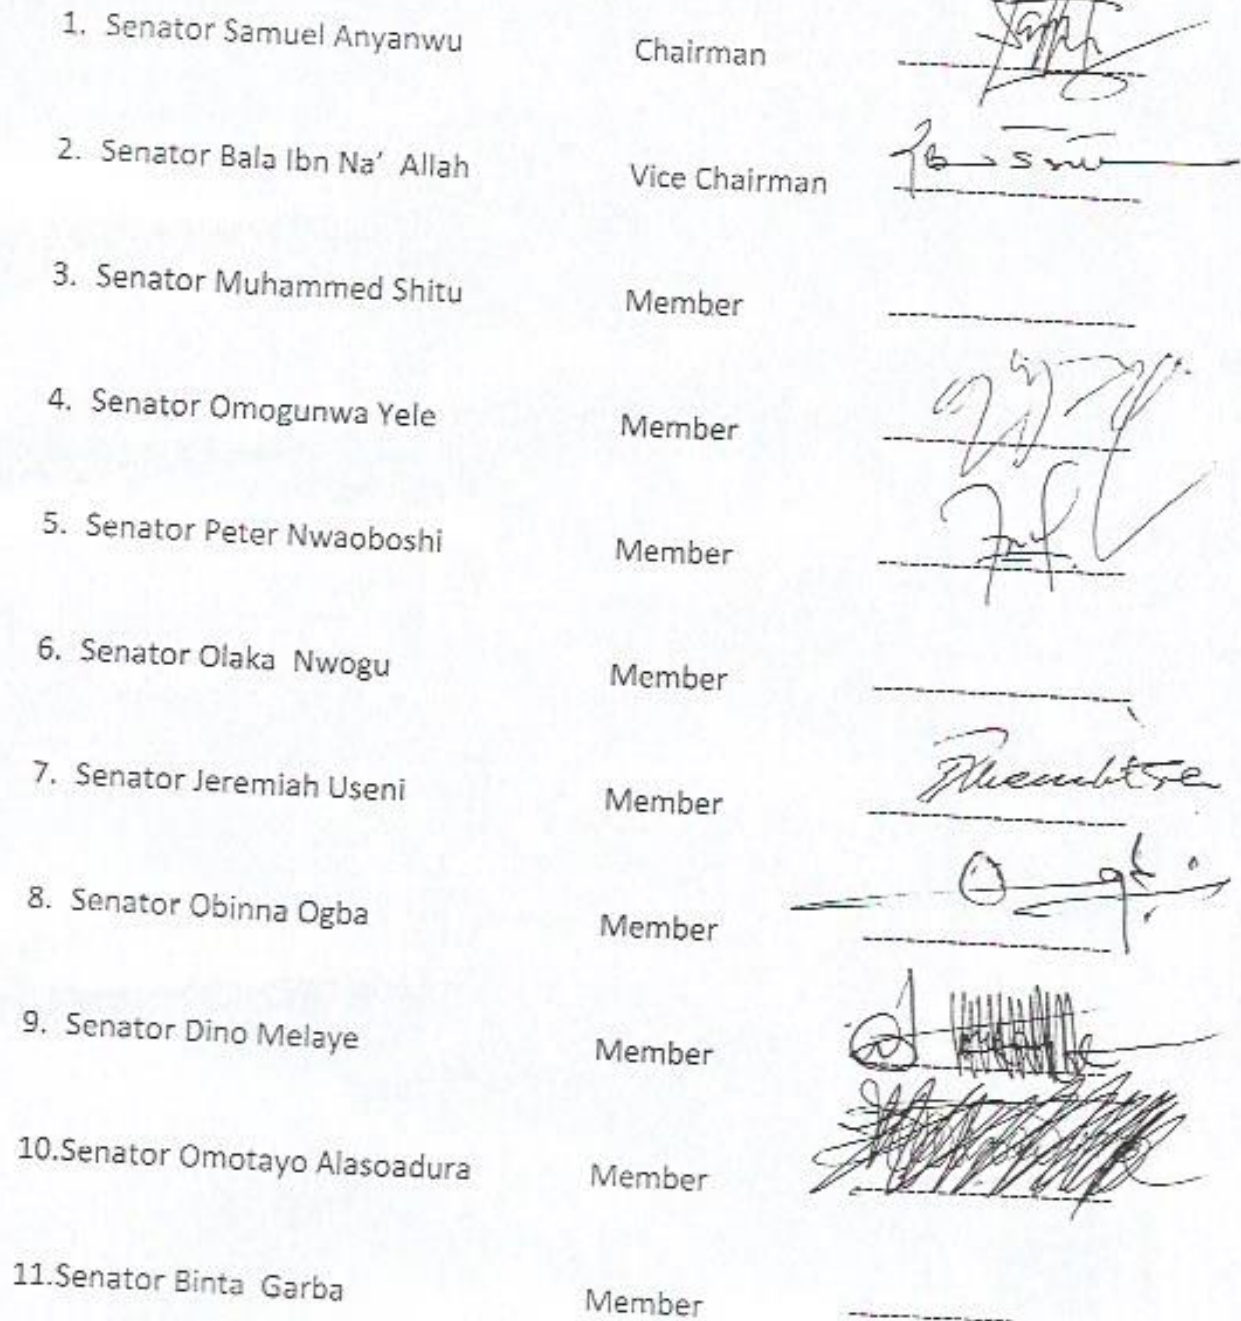 1. Senator Samuel Anyanwu Chairman
2. Senator Bala Ibn Na' Allah Vice Chairman
3. Senator Muhammed Shitu Member
4. Senator Omogunwa Yele Member
5. Senator Peter Nwaoboshi Member
6. Senator Olaka Nwogu Member
7. Senator Jeremiah Useni Member
8. Senator Obinna Ogba Member
9. Senator Dino Melaye Member
10.Senator Omotayo Alasoadura Member
11.Senator Binta Garba Member